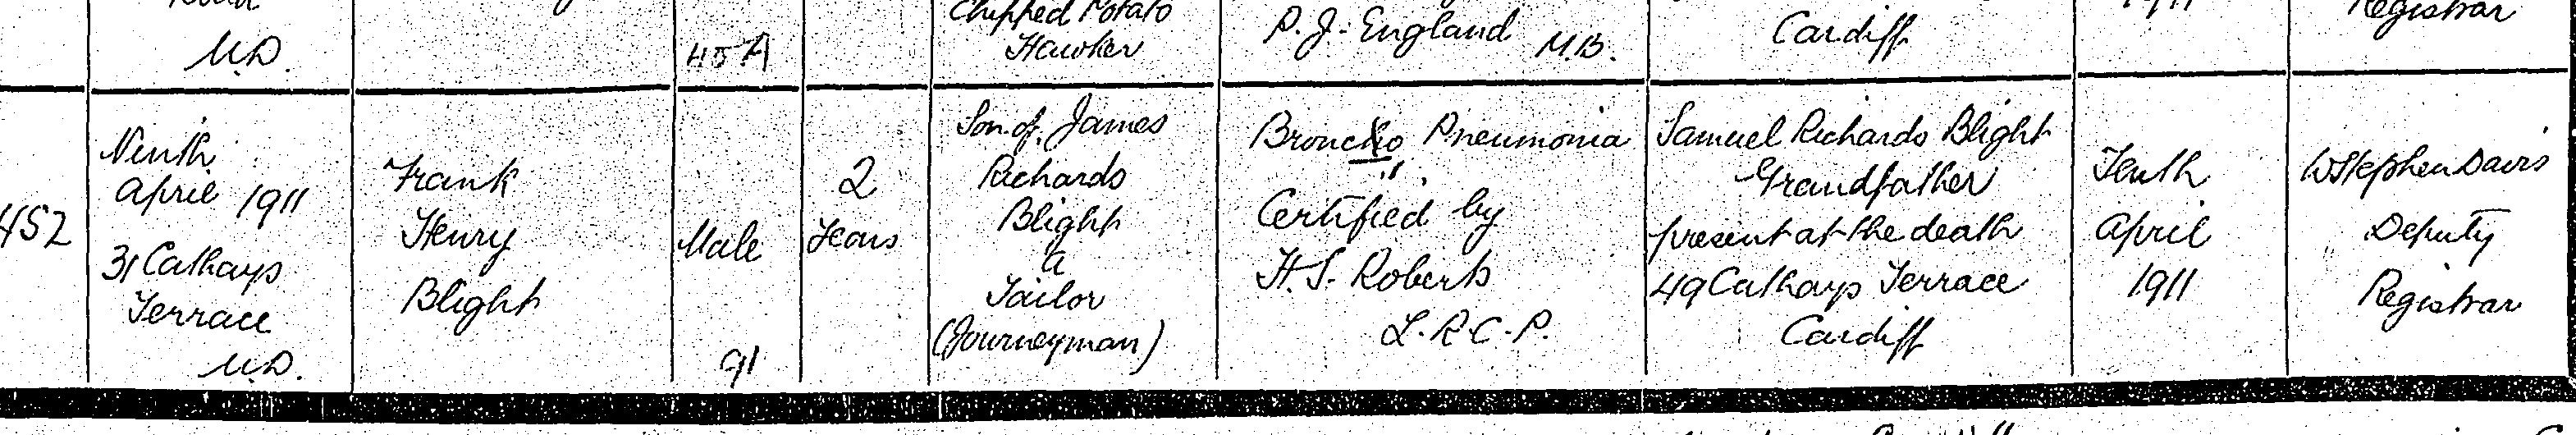 M.D.
45A
Chipped Potato
Hawker
P. J. England M.B.
Cardiff
1911
Registrar
452
Ninth
April 1911
31 Cathays
Terrace
U.D.
Frank
Henry
Blight
Male
91
2
Years
Son of James
Richards
Blight
a
Tailor
(Journeyman)
Broncho Pneumonia
Certified by
H. S. Roberts
L.R.C.P.
Samuel Richards Blight
Grandfather
present at the death
49 Cathays Terrace
Cardiff
Tenth
April
1911
W Stephen Davis
Deputy
Registrar